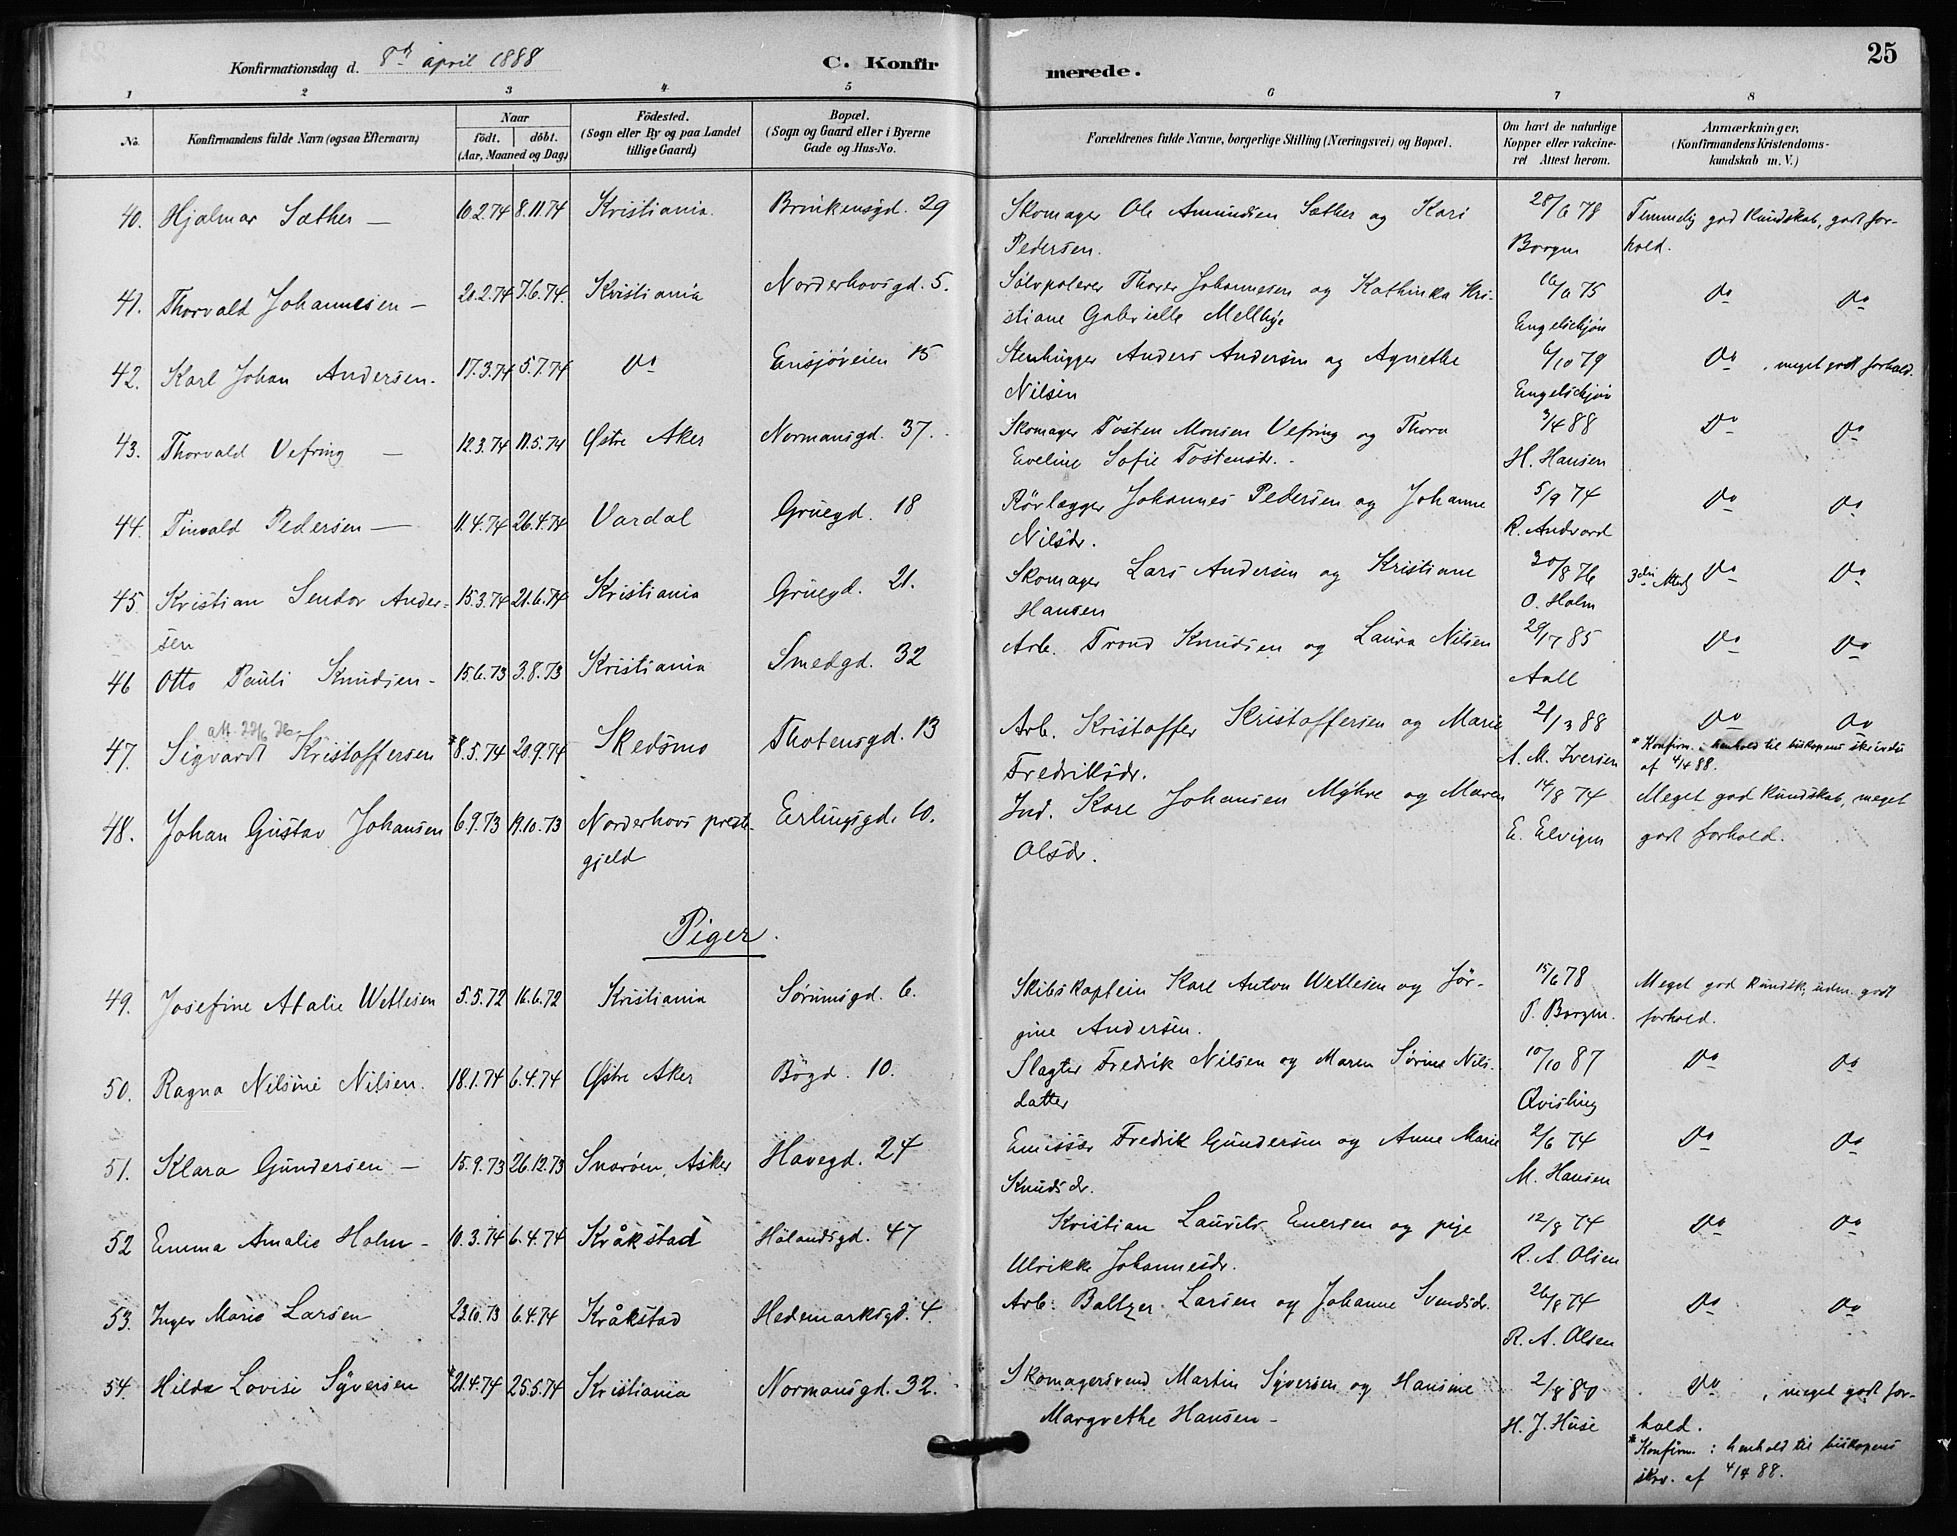 25
Konfirmationsdag d. 8d april 1888 C. Konfirmerede.
1 2 3 4 5 6 7 8
No. Konfirmandens fulde Navn (ogsaa Efternavn) Naar født. døbt. (Aar, Maaned og Dag) Fødested. (Sogn eller By og paa Landet tillige Gaard) Bopæl. (Sogn og Gaard eller i Byerne Gade og Hus-No. Forældrenes fulde Navne, borgerlige Stilling (Næringsvei) og Bopæl. Om havt de naturlige Kopper eller vakcineret Attest herom. Anmærkninger, (Konfirmandens Kristendomskundskab m. V.)
40. Hjalmar Sæther — 10.2.74 8.11.74 Kristiania. Brinkensgd. 29 Skomager Ole Amundsen Sæther og Kari 28/6 78 Temmelig god kundskab, godt for-
Pedersen. Borgen hold.
41. Thorvald Johannesen — 20.2.74 7.6.74. Kristiania Norderhovsgd. 5. Sølvpolerer Thorer Johannesen og Kathinka Kri- 16/6 75 Do Do
stiane Gabrielle Mellbye Engelschjøn
42. Karl Johan Andersen. 17.3.74 5.7.74 Do Ensjøveien 15 Stenhugger Anders Andersen og Agnethe 6/10 79 Do , meget godt forhold.
Nilsen Engelschjøn
43. Thorvald Vefring — 12.3.74 17.5.74 Østre Aker Normansgd. 37. Skomager Tosten Monsen Vefring og Thora 3/4 88 Do Do
Eveline Sofie Tostensdr. H. Hansen
44. Tinvald Pedersen — 11.4.74 26.4.74 Vardal Gruegd. 18 Rörlægger Johannes Pedersen og Johanne 5/9 74 Do Do
Nilsdr. R. Andvord
45. Kristian Sendov Ander- 15.3.74 21.6.74 Kristiania Gruegd. 21. Skomager Lars Andersen og Kristiane 30/8 76 Do Do
sen Hansen O. Holm
46 Otto Pauli Knudsen — 15.6.73 3.8.73 Kristiania Smedgd. 32 Arb. Trond Knudsen og Laura Nilsen 29/7 85 Do Do
Aall
47. Sigvardt Kristoffersen *8.5.74 20.9.74 Skedsmo Thotensgd. 13 Arb. Kristoffer Kristoffersen og Marie 21/3 88 Do Do
Fredriksdr. A. M. Iversen * Konfirm. i henhold til biskopens skrivelse
af 4/4 88.
48. Johan Gustav Johansen 6.9.73 19.10.73 Norderhovs preste- Eerlingsgd. 10. Ind. Karl Johansen Myhre og Maren 14/8 74 Meget god kundskab, meget
gjeld Olsdr. E. Elvigen godt forhold.
Piger.
49. Josefine Atalie Wetlesen 5.5.72 16.6.72 Kristiania Sørumsgd. 6. Skibskaptein Karl Anton Wetlesen og Jør- 15/6 78 Meget god kundsk, udm. godt
gine Andersen. P. Borgen. forhold.
50. Ragna Nilsine Nilsen. 18.1.74 6.4.74 Østre Aker Bögd. 10. Slagter Fredrik Nilsen og Maren Sørine Nils- 10/10 87 Do Do
datter Qvisling
51. Klara Gundersen — 15.9.73 26.12.73 Snarøen, Asker Havegd. 24 Emissær Fredrik Gundersen og Anne Marie 2/6 74 Do Do
Knudsdr. M. Hansen
52 Emma Amalie Holm — 10.3.74 6.4.74 Kråkstad Hölandsgd. 47 Kristian Laurits Enersen og pige 12/8 74 Do Do
Ulrikke Johannesdr. R. A. Olsen
53. Inger Marie Larsen 23.10.73 6.4.74 Kråkstad Hedemarksgd. 4. Arb. Baltzer Larsen og Johanne Svendsdr. 26/8 74 Do Do
R. A. Olsen
54. Hilda Lovise Syversen *21.4.74 25.5.74 Kristiania Normansgd. 32. Skomagersvend Martin Syversen og Hansine 2/8 80 Do , meget godt for-
Margrethe Hansen — H. J. Huse hold.
* Konfirm. i henhold til biskopens
skrv. af 4/4 88.